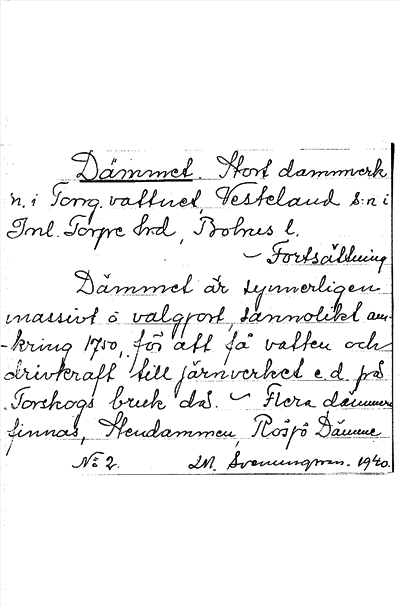 Dämmet. Stort dammverk
n. i Torg. vattnet, Västeland s:n i
Inl. Torpe hrd, Bohus l.
~ Fortsättning
Dämmet är synnerligen
massivt o valgjort, sannolikt om-
-kring 1750, för att få vatten och
drivkraft till järnverket e.d. på
Torskogs bruk då. ~ Flera dämmen
finnas, Stendammen, Rösjö Dämme
No 2. Svenungson. 1940.